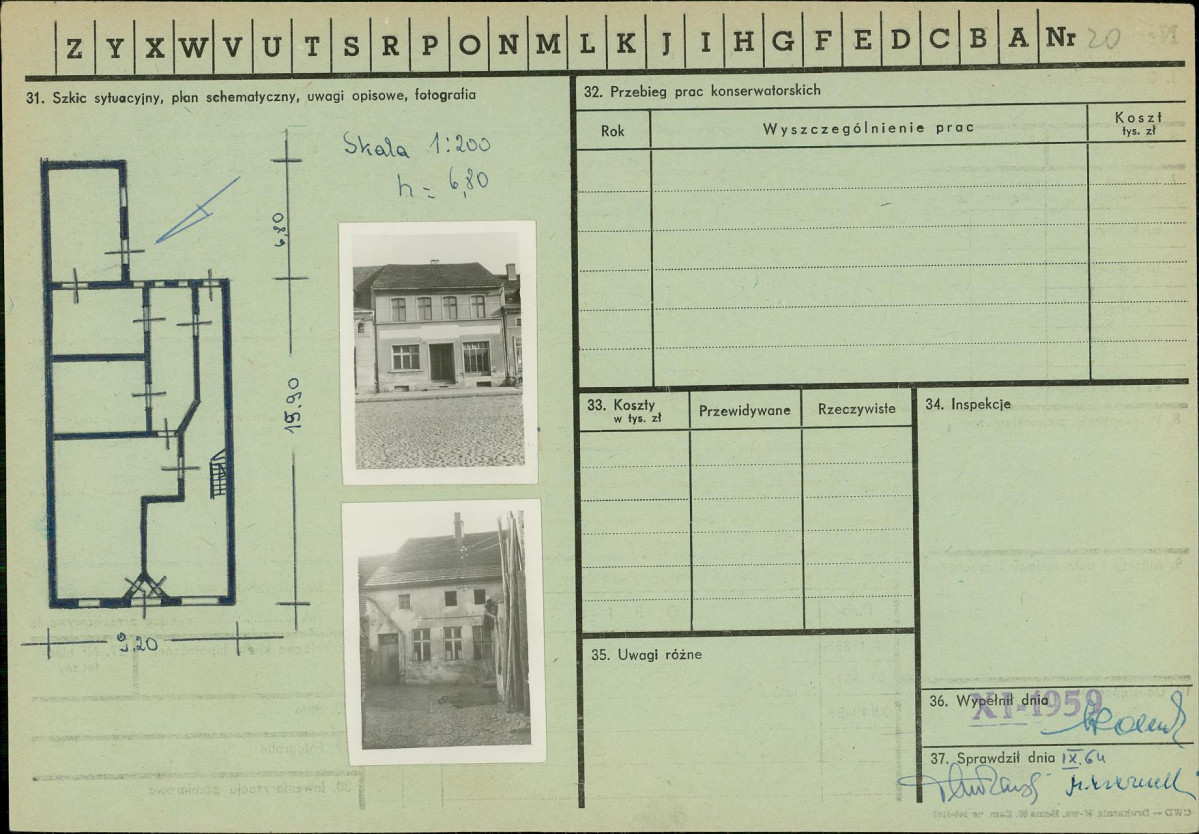 Z Y X W V U T S R P O N M L K J I H G F E D C B A Nr 20
31. Szkic sytuacyjny, plan schematyczny, uwagi opisowe, fotografia
Skala 1:200
h = 6,80
6,80
15,90
9,20
32. Przebieg prac konserwatorskich
Rok
Wyszczególnienie prac
Koszt
tys. zł
33. Koszty
w tys. zł
Przewidywane
Rzeczywiste
34. Inspekcje
35. Uwagi różne
36. Wypełnił dnia
XI-1959
37. Sprawdził dnia IX.64